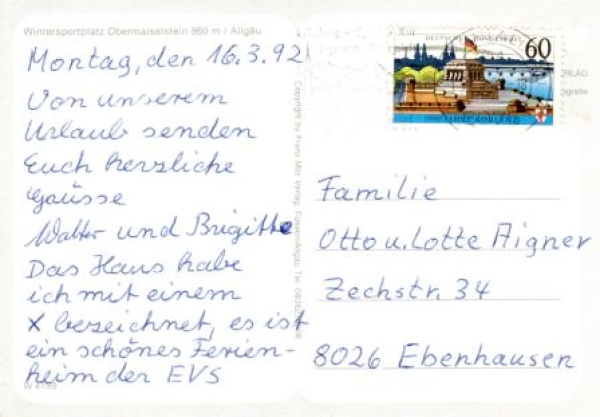 Wintersportplatz Obermaiselstein 860 m / Allgäu
Montag, den 16.3.92
Von unserem
Urlaub senden
Euch herzliche
Grüsse
Walter und Brigitte
Das Haus habe
ich mit einem
X bezeichnet, es ist
ein schönes Ferien-
heim der EVS
Copyright by Franz Milz Verlag,
DEUTSCHE BUNDESPOST
60
2000 JAHRE KOBLENZ
Familie
Otto u. Lotte Aigner
Zechstr. 34
8026 Ebenhausen